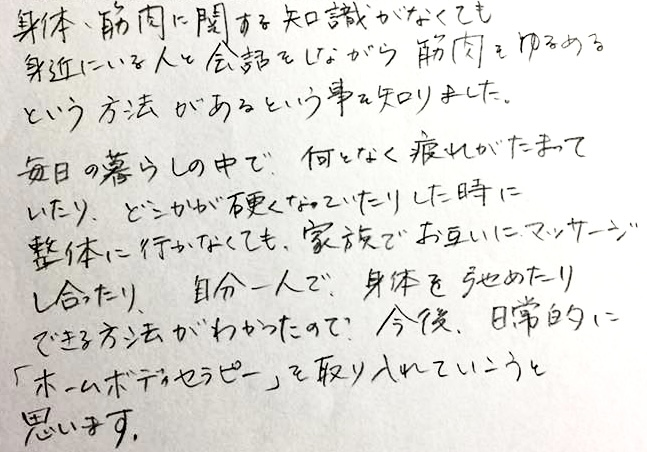 身体、筋肉に関する知識がなくても
身近にいる人と会話をしながら筋肉をゆるめる
という方法があるという事を知りました。
毎日の暮らしの中で、何となく疲れがたまって
いたり、どこかが硬くなっていたりした時に
整体に行かなくても、家族でお互いにマッサージ
し合ったり、自分一人で、身体を弛めたり
できる方法がわかったので、今後、日常的に
「ホームボディセラピー」を取り入れていこうと
思います。